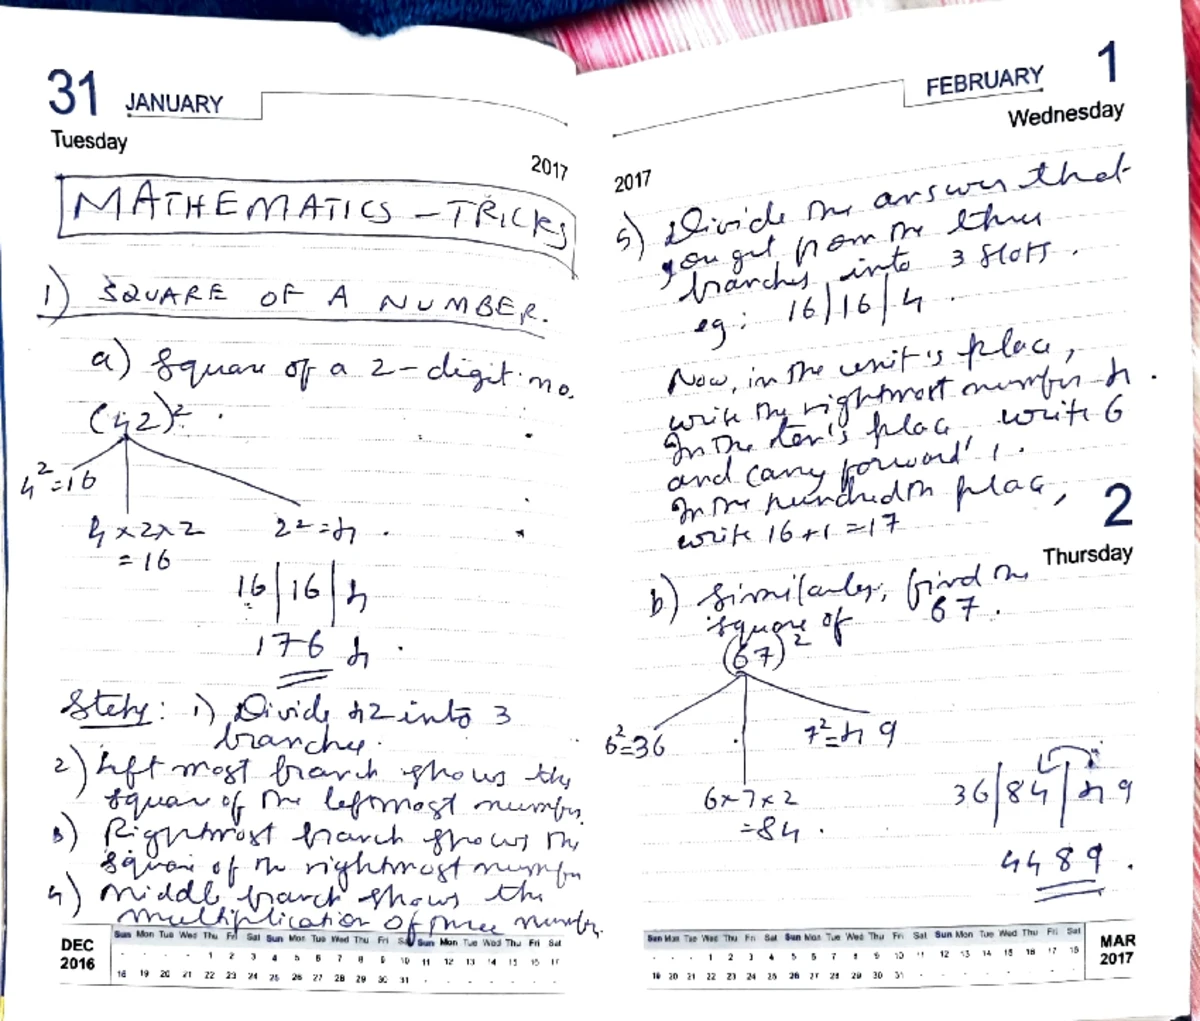 31 JANUARY
Tuesday
2017
MATHEMATICS - TRICKS
1) SQUARE OF A NUMBER.
a) Square of a 2-digit no.
(42)².
4²=16
4×2×2
=16
2²=4.
16|16|4
1764.
Steps: 1) Divide 42 into 3
branches.
2) Left most branch shows the
square of the leftmost number
3) Rightmost branch shows the
square of the rightmost number
4) Middle branch shows the
multiplication of three numbers.
DEC
2016
Sun Mon Tue Wed Thu Fri Sat Sun Mon Tue Wed Thu Fri Sat Sun Mon Tue Wed Thu Fri Sat
. . . . 1 2 3 4 5 6 7 8 9 10 11 12 13 14 15 16 17
18 19 20 21 22 23 24 25 26 27 28 29 30 31 . . . . . . .
FEBRUARY 1
Wednesday
2017
5) Divide the answer that
you get from the three
branches into 3 slots.
eg: 16|16|4.
Now, in the unit's place,
write the rightmost number 4.
In the ten's place write 6
and carry forward 1.
In the hundredth place,
write 16+1=17
2
Thursday
b) Similarly, find the
square of 67.
(67)²
6²=36
7²=49
6×7×2
=84.
36|84|49
4489.
Sun Mon Tue Wed Thu Fri Sat Sun Mon Tue Wed Thu Fri Sat Sun Mon Tue Wed Thu Fri Sat
. . . 1 2 3 4 5 6 7 8 9 10 11 12 13 14 15 16 17 18
19 20 21 22 23 24 25 26 27 28 29 30 31 . . . . . . . .
MAR
2017